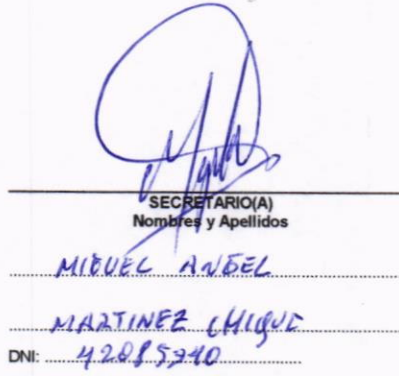 SECRETARIO(A)
Nombres y Apellidos
MIGUEL ANGEL
MARTINEZ CHIQUE
DNI: 42085940